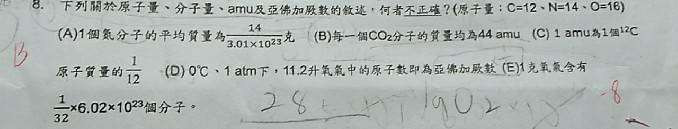 8. 下列關於原子量、分子量、amu及亞佛加厥數的敘述，何者不正確？(原子量：C=12、N=14、O=16)
(A)1個氮分子的平均質量為14/3.01×10²³克 (B)每一個CO₂分子的質量均為44 amu (C) 1 amu為1個¹²C
B
原子質量的1/12 (D) 0℃、1 atm下，11.2升氧氣中的原子數即為亞佛加厥數 (E)1克氧氣含有
1/32×6.02×10²³個分子。
28
-8